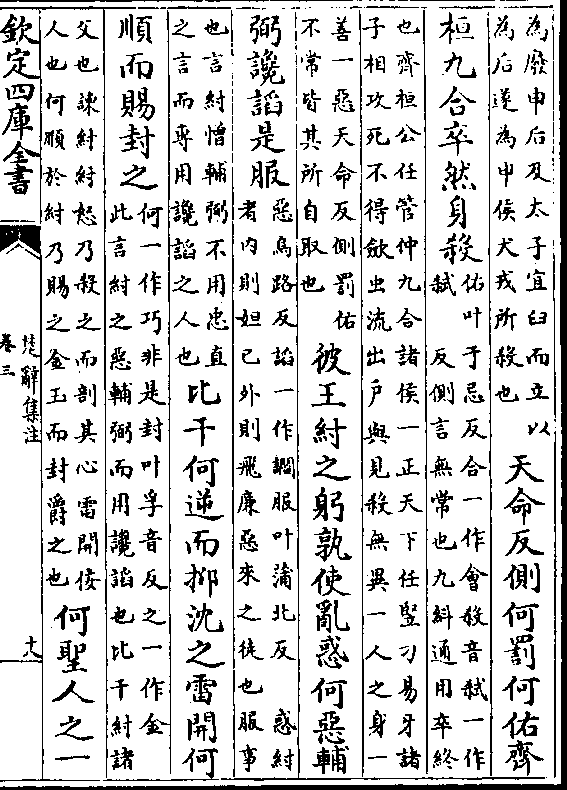 為廢申后及太子宜臼而立以
為后遂為申侯犬戎所殺也
天命反側何罰何佑齊
桓九合卒然身殺
佑叶于忌反合一作會殺音弑一作
弑　反側言無常也九糾通用卒終
也齊桓公任管仲九合諸侯一正天下任豎刁易牙諸
子相攻死不得斂虫流出戶與見殺無異一人之身一
善一惡天命反側罰佑
不常皆其所自取也
彼王紂之躬孰使亂惑何惡輔
弼讒諂是服
惡烏路反諂一作讇服叶蒲北反　惑紂
者内則妲己外則飛廉惡來之徒也服事
也言紂憎輔弼不用忠直
之言而專用讒諂之人也
比干何逆而抑沈之雷開何
順而賜封之
何一作巧非是封叶孚音反之一作金
此言紂之惡輔弼而用讒諂也比干紂諸
父也諫紂紂怒乃殺之而剖其心雷開佞
人也何順於紂乃賜之金玉而封爵之也
何聖人之一
欽定四庫全書
楚辭集注
卷三
十八